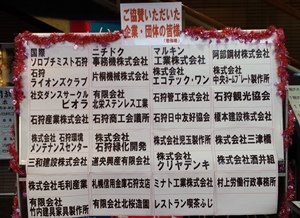 ご協賛いただいた
企業・団体の皆様
国際
ソロプチミスト石狩
ニチドク
事務機株式会社
マルキン
工業株式会社
阿部鋼材株式会社
石狩
ライオンズクラブ
片桐機械株式会社
株式会社
エコテック・ワン
株式会社
社交ダンスサークル
ビオラ
有限会社
北栄ステンレス工業
石狩管工株式会社
石狩観光協会
石狩産業株式会社
石狩商工会議所
石狩日中友好協会
榎本建設株式会社
株式会社 石狩環境
メンテナンスセンター
株式会社
石狩緑化開発
株式会社児玉製作所
株式会社三津橋
三和建設株式会社
道央興産有限会社
株式会社
クリヤデンキ
株式会社酒井組
株式会社毛利産業
札幌信用金庫石狩支店
ミナト工業株式会社
村上労働行政事務所
有限会社
竹内建具家具製作所
有限会社北桜造園
レストラン喫茶ふじ